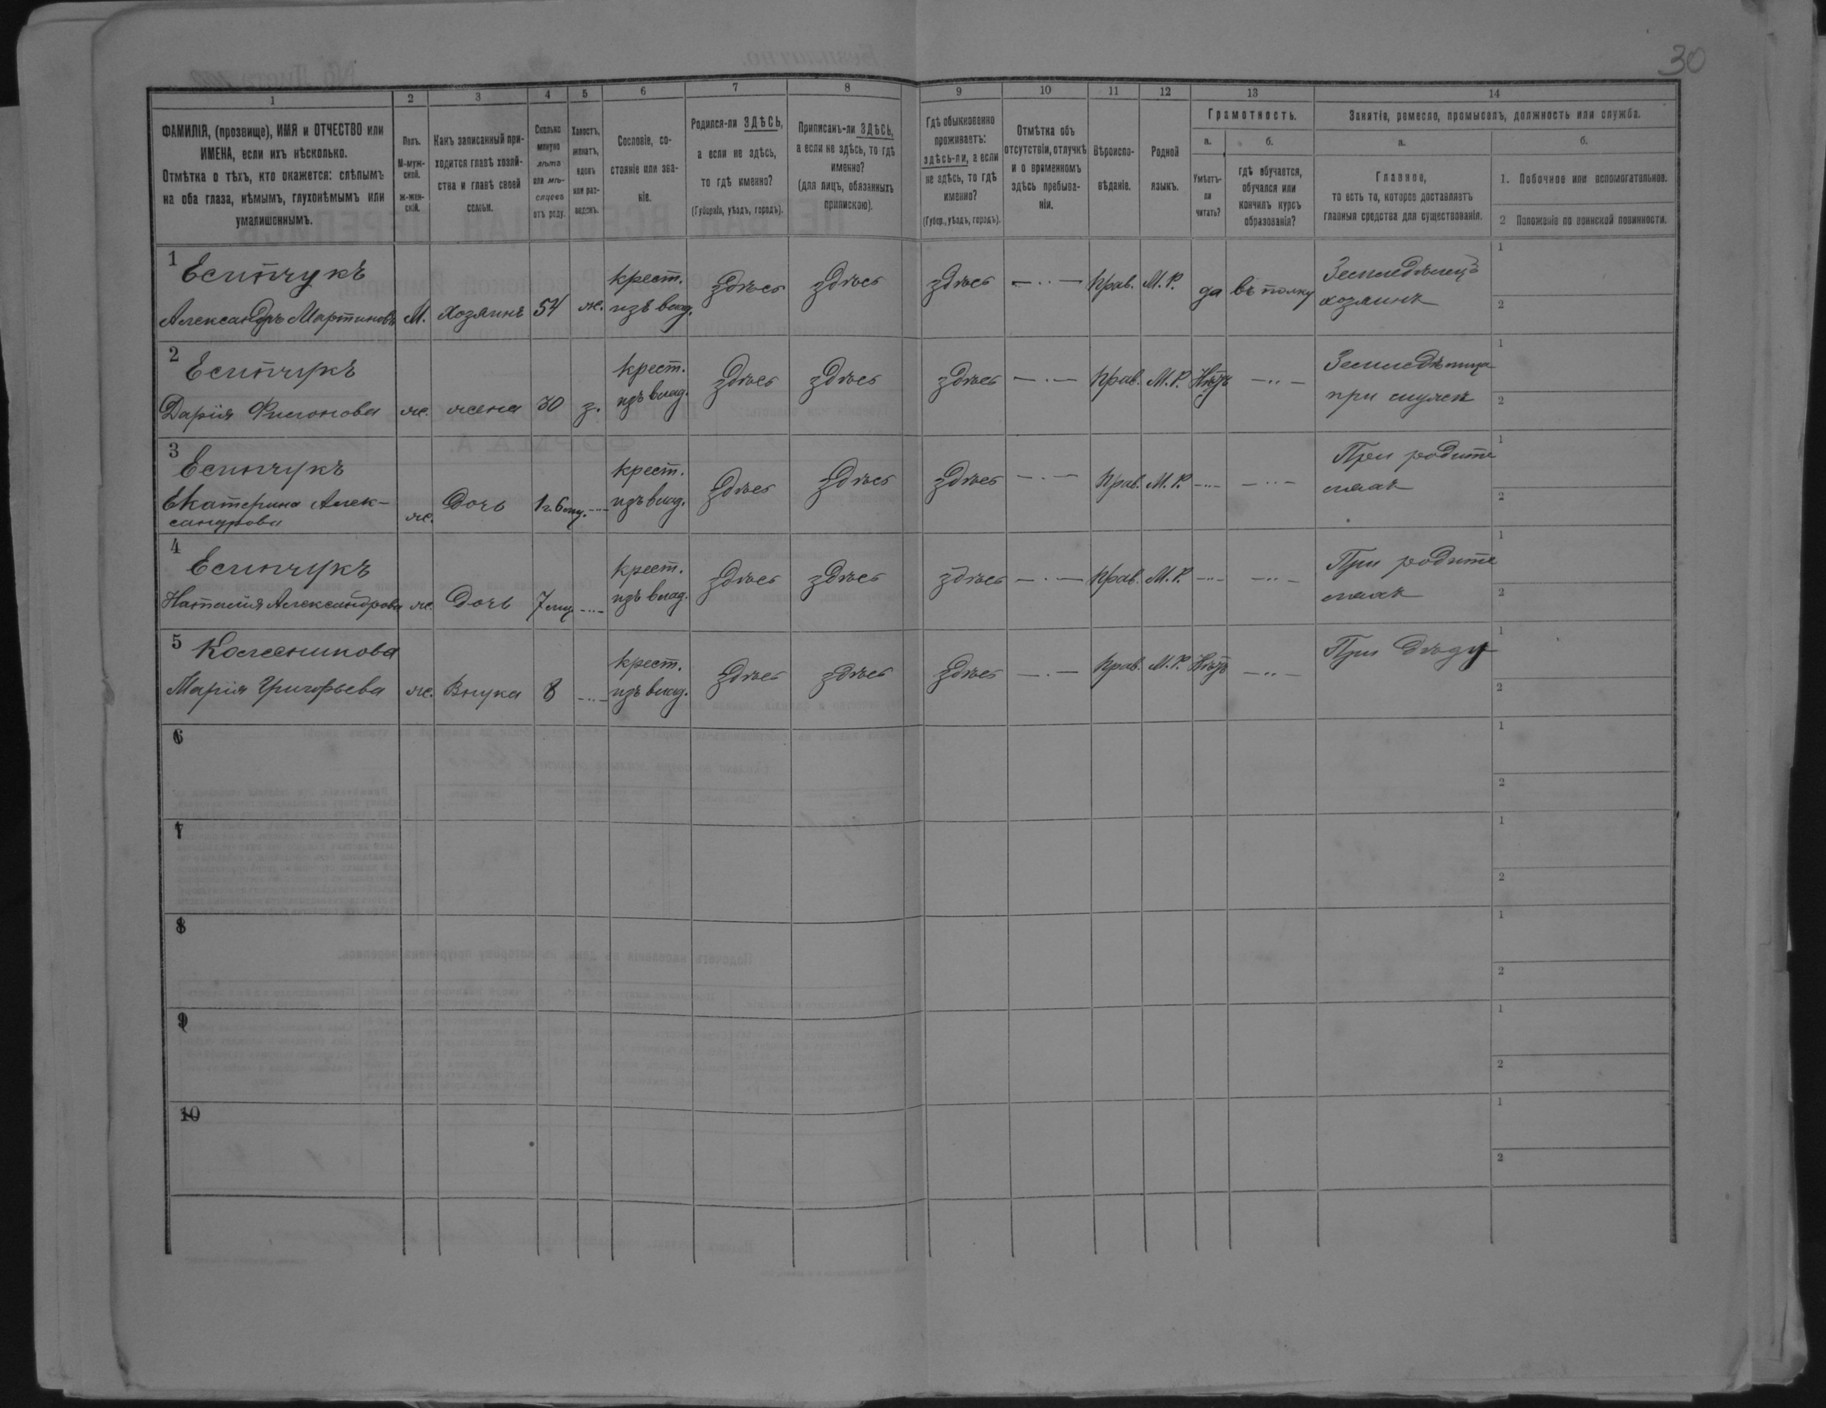 30
1 2 3 4 5 6 7 8 9 10 11 12 13 14
ФАМИЛІЯ, (прозвище), ИМЯ и ОТЧЕСТВО или
ИМЕНА, если ихъ нѣсколько.
Отмѣтка о тѣхъ, кто окажется: слѣпымъ
на оба глаза, нѣмымъ, глухонѣмымъ или
умалишеннымъ.
Полъ.
М-муж-
ской.
ж-жен-
скій.
Какъ записанный при-
ходится главѣ хозяй-
ства и главѣ своей
семьи.
Сколько
минуло
лѣтъ
или мѣ-
сяцевъ
отъ роду.
Холостъ,
женатъ,
вдовъ
или раз-
веденъ.
Сословіе, со-
стояніе или зва-
ніе.
Родился-ли ЗДѢСЬ,
а если не здѣсь,
то гдѣ именно?
(Губернія, уѣздъ, городъ).
Приписанъ-ли ЗДѢСЬ,
а если не здѣсь, то гдѣ
именно?
(для лицъ, обязанныхъ
припискою).
Гдѣ обыкновенно
проживаетъ:
здѣсь-ли, а если
не здѣсь, то гдѣ
именно?
(Губер., уѣздъ, городъ).
Отмѣтка объ
отсутствіи, отлучкѣ
и о временномъ
здѣсь пребыва-
ніи.
Вѣроиспо-
вѣданіе.
Родной
языкъ.
Грамотность.
а.
Умѣетъ-
ли
читать?
б.
гдѣ обучается,
обучался или
кончилъ курсъ
образованія?
Занятіе, ремесло, промыселъ, должность или служба.
а.
Главное,
то есть то, которое доставляетъ
главныя средства для существованія.
б.
1. Побочное или вспомогательное.
2 Положеніе по воинской повинности.
1 Есипчукъ крест. здѣсь здѣсь здѣсь — ·· — Прав. М.Р. да въ полку Земледѣлецъ 1
Александръ Мартиновъ М. хозяинъ 54 ж. изъ влад. хозяинъ 2
2 Есипчукъ крест. здѣсь здѣсь здѣсь — · — Прав. М.Р. Нѣтъ — ·· — 1
Дарія Филонова ж. жена 30 з. изъ влад. при мужѣ 2
3 Есипчукъ крест. здѣсь здѣсь здѣсь — · — Прав. М.Р. — ·· — — ·· — При родите 1
Екатерина Алек-
сандрова ж. Дочь 1 г. 6 мц. — ·· — изъ влад. ляхъ 2
4 Есипчукъ крест. здѣсь здѣсь здѣсь — · — Прав. М.Р. — ·· — — ·· — При родите 1
Наталія Александрова ж. Дочь 7 мц. — ·· — изъ влад. ляхъ 2
5 Колесникова крест. здѣсь здѣсь здѣсь — · — Прав. М.Р. Нѣтъ — ·· — При дѣду 1
Марія Григорьева ж. Внука 8 — ·· — изъ влад. 2
6 1
2
7 1
2
8 1
2
9 1
2
10 1
2